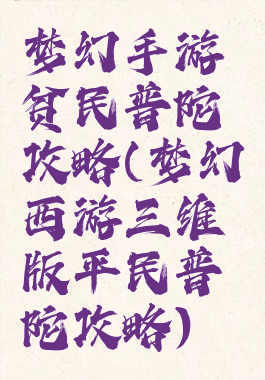 梦幻手游
贫民普陀
攻略(梦幻
西游三维
版平民普
陀攻略)